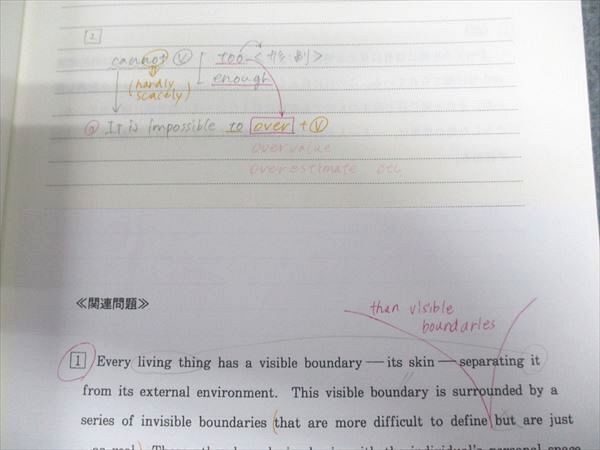 2
cannot Ⓥ [ too <形・副>
(hardly enough
scacely)
It is impossible to over + Ⓥ
overvalue
overestimate etc
≪関連問題≫
than visible
boundaries
1 Every living thing has a visible boundary — its skin — separating it
from its external environment. This visible boundary is surrounded by a
series of invisible boundaries (that are more difficult to define but are just
as real)